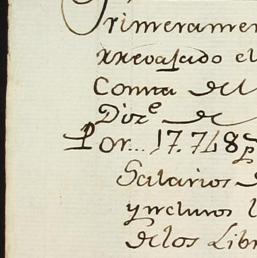 Primeramen
rrevajado el
Contra del
Dizͤ de
Por... 17.748p
Salarios d
yncluros l
delos Libr